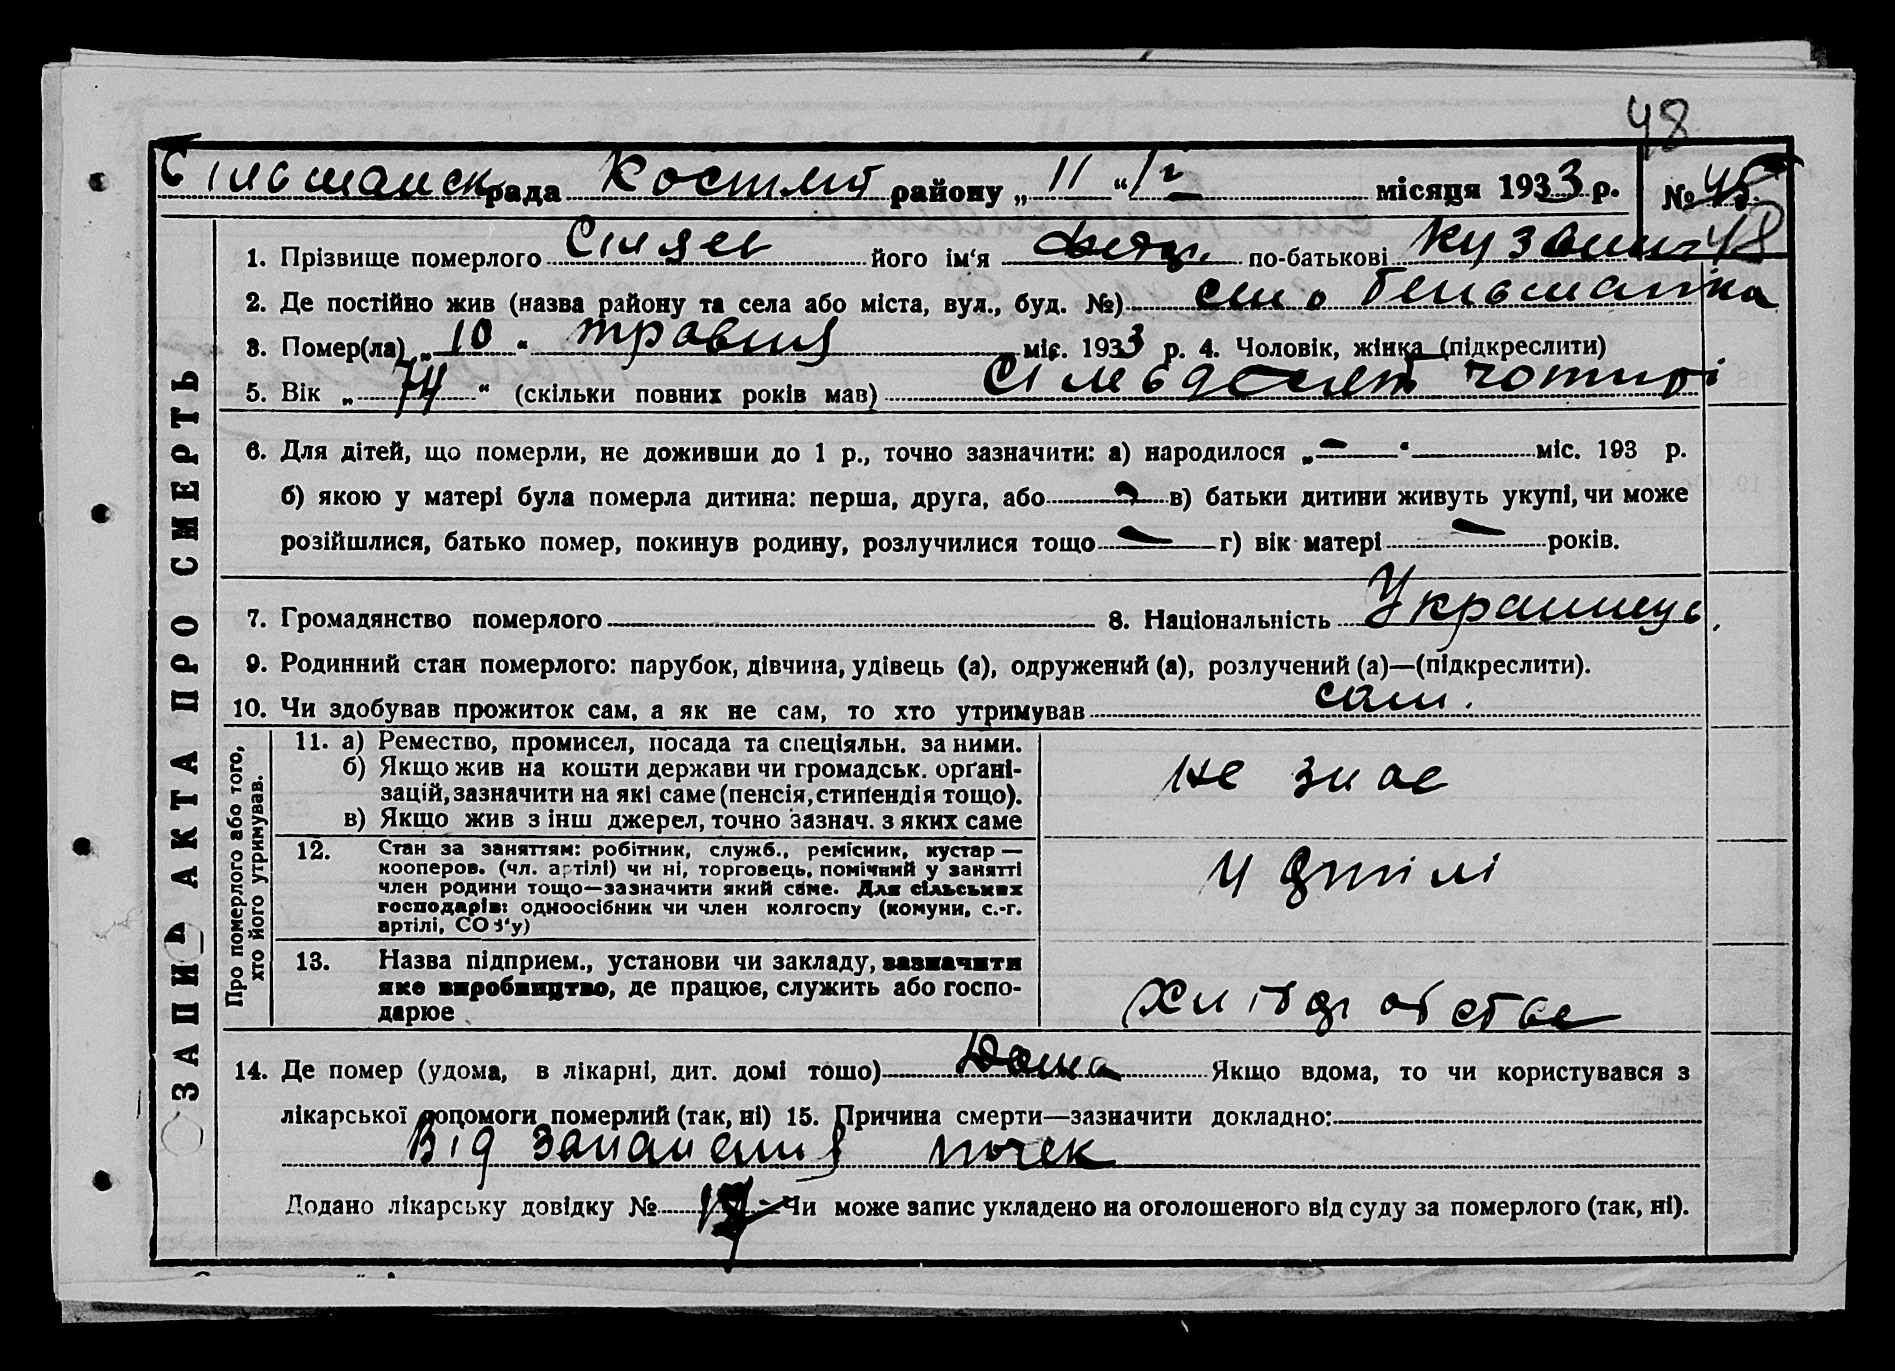 48
рада Костян району „ 11 “ місяця 1933 р. № 45
48
1. Прізвище померлого його ім‘я по-батькові
2. Де постійно жив (назва району та села або міста, вул., буд. №) село
3. Помер(ла) „ 10 “ травня міс. 1933 р. 4. Чоловік, жінка (підкреслити)
5. Вік „ 74 “ (скільки повних років мав) сімьдесят чотирі
6. Для дітей, що померли, не доживши до 1 р., точно зазначити: а) народилося „ — “ міс. 193 р.
б) якою у матері була померла дитина: перша, друга, або — в) батьки дитини живуть укупі, чи може
розійшлися, батько помер, покинув родину, розлучилися тощо — г) вік матері — років.
7. Громадянство померлого 8. Національність Украинець.
9. Родинний стан померлого: парубок, дівчина, удівець (а), одружений (а), розлучений (а)—(підкреслити).
10. Чи здобував прожиток сам, а як не сам, то хто утримував сам.
ЗАПИС АКТА ПРО СМЕРТЬ
Про померлого або того, хто його утримував.
11. а) Ремество, промисел, посада та спеціяльн. за ними.
б) Якщо жив на кошти держави чи громадськ. орґані-
зацій, зазначити на які саме (пенсія, стипендія тощо).
в) Якщо жив з інш джерел, точно зазнач. з яких саме
не знає
12. Стан за заняттям: робітник, служб., ремісник, кустар —
кооперов. (чл. артілі) чи ні, торговець, помічний у занятті
член родини тощо—зазначити який саме. Для сільських
господарів: одноосібник чи член колгоспу (комуни, с.-г.
артілі, СОЗ‘у)
у артілі
13. Назва підприєм., установи чи закладу, зазначити
яке виробництво, де працює, служить або госпо-
дарює
14. Де помер (удома, в лікарні, дит. домі тощо) Дома Якщо вдома, то чи користувався з
лікарської допомоги померлий (так, ні) 15. Причина смерти—зазначити докладно:
Від запалення почек
Додано лікарську довідку № Чи може запис укладено на оголошеного від суду за померлого (так, ні).